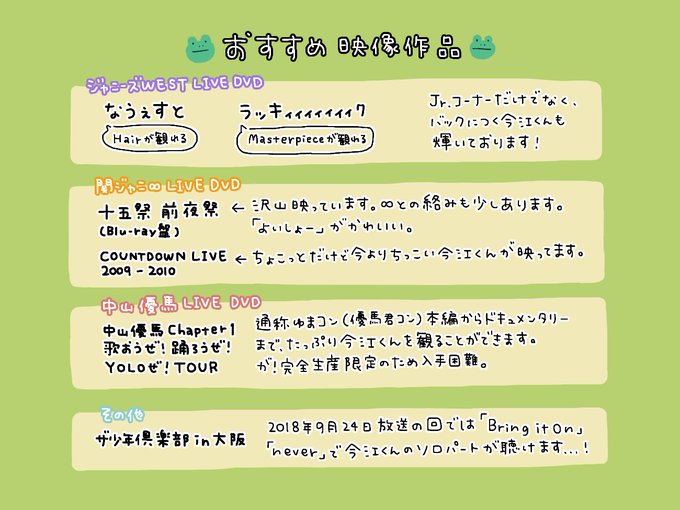 おすすめ 映像作品
ジャニーズWEST LIVE DVD
なうぇすと
Hairが観れる
ラッキィィィィィィィ7
Masterpieceが観れる
Jr.コーナーだけでなく、
バックにつく今江くんも
輝いております!
関ジャニ∞ LIVE DVD
十五祭 前夜祭
(Blu-ray盤)
← 沢山映っています。∞との絡みも少しあります。
「よいしょー」がかわいい。
COUNTDOWN LIVE
2009-2010
← ちょこっとだけど今よりちっこい今江くんが映ってます。
中山優馬 LIVE DVD
中山優馬 Chapter1
歌おうぜ!踊ろうぜ!
YOLOぜ!TOUR
通称ゆまコン(優馬君コン)本編からドキュメンタリー
まで、たっぷり今江くんを観ることができます。
が!完全生産限定のため入手困難。
その他
ザ少年倶楽部in大阪
2018年9月24日放送の回では「Bring it On」
「never」で今江くんのソロパートが聴けます...!